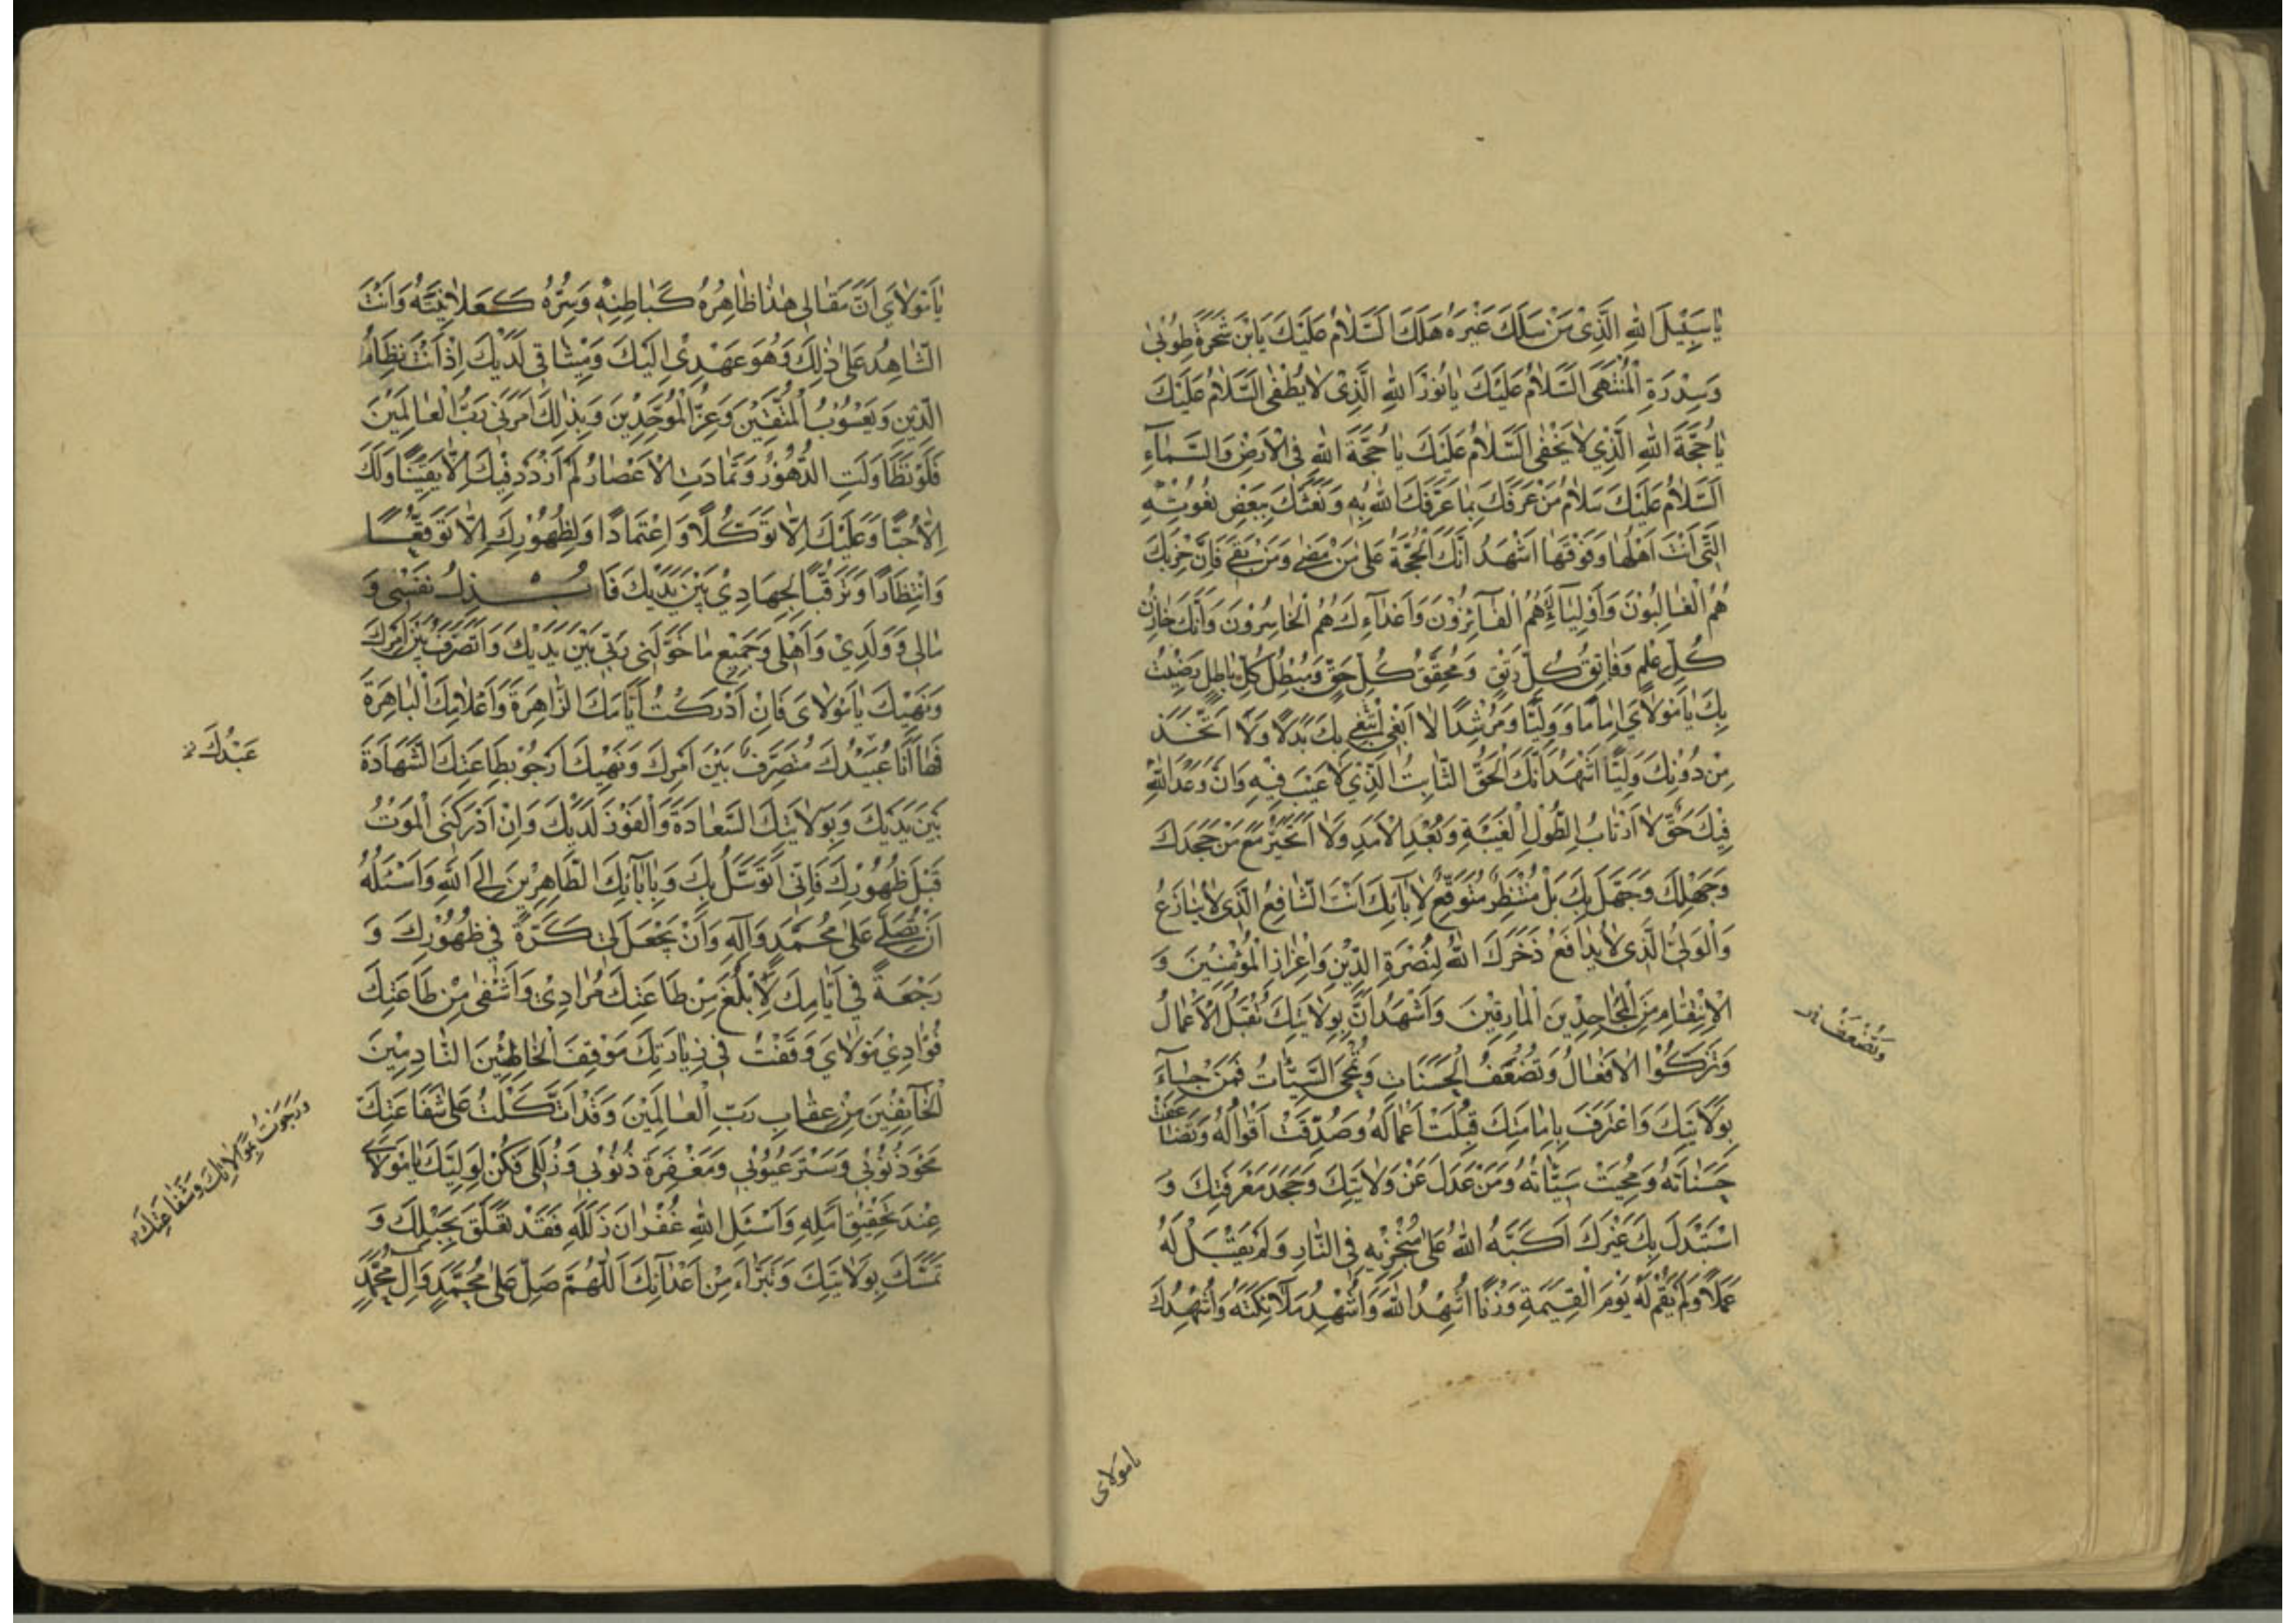 يٰا سَبِيْلَ اللهِ الَّذِيْ مَنْ سَلَكَ غَيْرَهُ هَلَكَ اَلسَّلٰامُ عَلَيْكَ يَا بْنَ شَجَرَةِ طُوْبٰى
وَسِدْرَةِ الْمُنْتَهٰى اَلسَّلٰامُ عَلَيْكَ يٰا نُوْرَ اللهِ الَّذِيْ لٰا يُطْفٰى اَلسَّلٰامُ عَلَيْكَ
يٰا حُجَّةَ اللهِ الَّذِيْ لٰا يَخْفٰى اَلسَّلٰامُ عَلَيْكَ يٰا حُجَّةَ اللهِ فِى الْاَرْضِ وَالسَّمٰآءِ
اَلسَّلٰامُ عَلَيْكَ سَلٰامُ مَنْ عَرَفَكَ بِمٰا عَرَّفَكَ اللهُ بِهِ وَنَعَتَكَ بِبَعْضِ نُعُوْتِهِ
الَّتِىْ اَنْتَ اَهْلُهٰا وَفَوْقَهٰا اَشْهَدُ اَنَّكَ الْحُجَّةُ عَلٰى مَنْ مَضٰى وَمَنْ بَقِىَ فَاِنَّ حِزْبَكَ
هُمُ الْغٰالِبُوْنَ وَاَوْلِيٰآئِكَ هُمُ الْفٰآئِزُوْنَ وَاَعْدٰآءِكَ هُمُ الْخٰاسِرُوْنَ وَاَنَّكَ خٰازِنُ
كُلِّ عِلْمٍ وَفٰاتِقُ كُلِّ رَتْقٍ وَمُحَقِّقُ كُلِّ حَقٍّ وَمُبْطِلُ كُلِّ بٰاطِلٍ رَضِيْتُ
بِكَ يٰا مَوْلٰاىَ اِمٰامًا وَوَلِيًّا وَمُرْشِدًا لٰا اَبْغِىْ اَبْتَغِىْ بِكَ بَدَلًا وَلٰا اَتَّخِذُ
مِنْ دُوْنِكَ وَلِيًّا اَشْهَدُ اَنَّكَ الْحَقُّ الثّٰابِتُ الَّذِيْ لٰا عَيْبَ فِيْهِ وَاَنَّ وَعْدَ اللهِ
فِيْكَ حَقٌّ لٰا اَرْتٰابُ لِطُوْلِ الْغَيْبَةِ وَبُعْدِ الْاَمَدِ وَلٰا اَتَحَيَّرُ مَعَ مَنْ جَحَدَكَ
وَجَهِلَكَ وَجَهِلَ بِكَ بَلْ مُنْتَظِرٌ مُتَوَقِّعٌ لِاٰبٰآئِكَ اَنْتَ الشّٰافِعُ الَّذِيْ لٰا يُنٰازَعُ
وَالْوَلِىُّ الَّذِيْ لٰا يُدٰافَعُ ذَخَرَكَ اللهُ لِنُصْرَةِ الدِّيْنِ وَاِعْزٰازِ الْمُؤْمِنِيْنَ وَ
الْاِنْتِقٰامِ مِنَ الْجٰاحِدِيْنَ الْمٰارِقِيْنَ وَاَشْهَدُ اَنَّ بِوَلٰايَتِكَ تُقْبَلُ الْاَعْمٰالُ
وَتَزْكُوا الْاَفْعٰالُ وَتُضْعَفُ الْحَسَنٰاتُ وَتُمْحَى السَّيِّئٰاتُ فَمَنْ جٰآءَ
بِوَلٰايَتِكَ وَاعْتَرَفَ بِاِمٰامَتِكَ قُبِلَتْ اَعْمٰالُهُ وَصُدِّقَتْ اَقْوٰالُهُ وَتَضٰاعَفَتْ
حَسَنٰاتُهُ وَمُحِيَتْ سَيِّئٰاتُهُ وَمَنْ عَدَلَ عَنْ وَلٰايَتِكَ وَجَحَدَ مَعْرِفَتَكَ وَ
اسْتَبْدَلَ بِكَ غَيْرَكَ اَكَبَّهُ اللهُ عَلٰى مَنْخَرَيْهِ فِى النّٰارِ وَلَمْ يَقْبَلْ لَهُ
عَمَلًا وَلَمْ يُقِمْ لَهُ يَوْمَ الْقِيٰمَةِ وَزْنًا اُشْهِدُ اللهَ وَاُشْهِدُ مَلٰآئِكَتَهُ وَاُشْهِدُكَ
يٰامَوْلٰاى
يٰا مَوْلٰاىَ اَنَّ مَقٰالِى هٰذٰا ظٰاهِرُهُ كَبٰاطِنِهِ وَسِرُّهُ كَعَلٰانِيَتِهِ وَاَنْتَ
الشّٰاهِدُ عَلٰى ذٰلِكَ وَهُوَ عَهْدِيْ اِلَيْكَ وَمِيْثٰاقِى لَدَيْكَ اِذْ اَنْتَ نِظٰامُ
الدِّيْنِ وَيَعْسُوْبُ الْمُتَّقِيْنَ وَعِزُّ الْمُوَحِّدِيْنَ وَبِذٰلِكَ اَمَرَنِى رَبُّ الْعٰالَمِيْنَ
فَلَوْ تَطٰاوَلَتِ الدُّهُوْرُ وَتَمٰادَتِ الْاَعْصٰارُ لَمْ اَزْدَدْ فِيْكَ اِلَّا يَقِيْنًا وَلَكَ
اِلَّا حُبًّا وَعَلَيْكَ اِلَّا تَوَكُّلًا وَاعْتِمٰادًا وَلِظُهُوْرِكَ اِلَّا تَوَقُّعًا
وَانْتِظٰارًا وَتَرَقُّبًا لِجِهٰادِيْ بَيْنَ يَدَيْكَ فَابْذُلُ نَفْسِىْ وَ
مٰالِى وَوَلَدِيْ وَاَهْلِى وَجَمِيْعَ مٰا خَوَّلَنِى رَبِّى بَيْنَ يَدَيْكَ وَاَتَصَرَّفُ بَيْنَ اَمْرِكَ
وَنَهْيِكَ يٰا مَوْلٰاىَ فَاِنْ اَدْرَكْتُ اَيّٰامَكَ الزّٰاهِرَةَ وَاَعْلٰامَكَ الْبٰاهِرَةَ
فَهٰا اَنَا عُبَيْدُكَ مُتَصَرِّفٌ بَيْنَ اَمْرِكَ وَنَهْيِكَ اَرْجُوْ بِطٰاعَتِكَ الشَّهٰادَةَ
بَيْنَ يَدَيْكَ وَبِوَلٰايَتِكَ السَّعٰادَةَ وَالْفَوْزَ لَدَيْكَ وَاِنْ اَدْرَكَنِى الْمَوْتُ
قَبْلَ ظُهُوْرِكَ فَاِنِّى اَتَوَسَّلُ بِكَ وَبِاٰبٰآئِكَ الطّٰاهِرِيْنَ اِلَى اللهِ وَاَسْئَلُهُ
اَنْ يُصَلِّىَ عَلٰى مُحَمَّدٍ وَاٰلِهِ وَاَنْ يَجْعَلَ لِى كَرَّةً فِى ظُهُوْرِكَ وَ
رَجْعَةً فِى اَيّٰامِكَ لِاَبْلُغَ مِنْ طٰاعَتِكَ مُرٰادِيْ وَاَشْفٰى مِنْ طٰاعَتِكَ
فُؤٰادِيْ مَوْلٰاىَ وَقَفْتُ فِى زِيٰارَتِكَ مَوْقِفَ الْخٰاطِئِيْنَ النّٰادِمِيْنَ
الْخٰآئِفِيْنَ مِنْ عِقٰابِ رَبِّ الْعٰالَمِيْنَ وَقَدِ اتَّكَلْتُ عَلٰى شَفٰاعَتِكَ
مَحْوَ ذُنُوْبِى وَسَتْرَ عُيُوْبِى وَمَغْفِرَةَ ذُنُوْبِى وَزَلَلِى فَكُنْ لِوَلِيِّكَ يٰا مَوْلٰاىَ
عِنْدَ تَحْقِيْقِ اَمَلِهِ وَاَسْئَلِ اللهَ غُفْرٰانَ زَلَلِهِ فَقَدْ تَعَلَّقَ بِحَبْلِكَ وَ
تَمَسَّكَ بِوَلٰايَتِكَ وَتَبَرَّاَ مِنْ اَعْدٰآئِكَ اَللّٰهُمَّ صَلِّ عَلٰى مُحَمَّدٍ وَاٰلِ مُحَمَّدٍ
عَبْدُكَ
وَرَجَوْتُ بِمُوٰالٰاتِكَ وَشَفٰاعَتِكَ